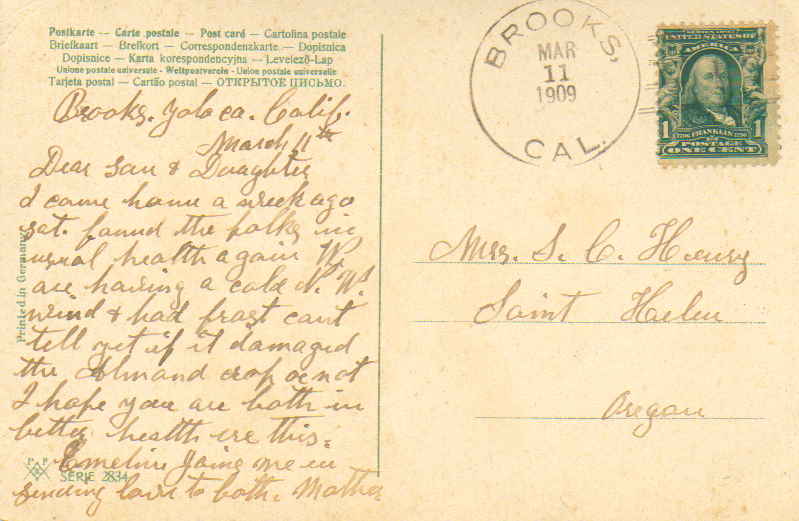 Postkarte — Carte postale — Post card — Cartolina postale
Briefkaart — Brefkort — Correspondenzkarte — Dopisnica
Dopisnice — Karta korespondencyjna — Levelező-Lap
Unione postale universale - Weltpostverein - Union postale universelle
Tarjeta postal — Cartão postal — ОТКРЫТОЕ ПИСЬМО.
Brooks. Yolo Co. Calif.
March 11th
Dear Son & Daughter
I came home a week ago
sat. found the folks in
usual health again W.
are having a cold N. W.
wind & had frost cant
tell yet if it damaged
the Almond crop or not
I hope you are both in
better health ere this.
Emeline joins me in
sending love to both. Mother
Printed in Germany
P P
SERIE 2834
BROOKS,
MAR
11
1909
CAL.
UNITED STATES OF
AMERICA
1706 FRANKLIN 1790
1 POSTAGE 1
ONE CENT
Mrs. S. C. Henry
Saint Helen
Oregon